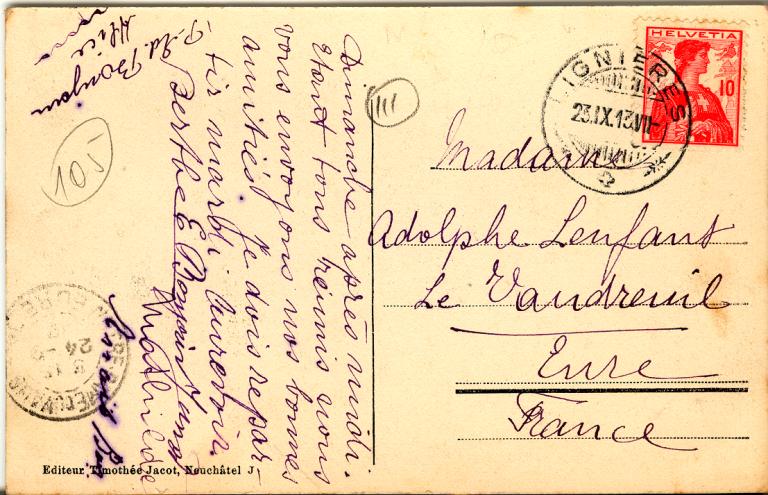 Dimanche après midi.
étant tous réunis nous
vous envoyons nos bonnes
amitiés. Je dois repar-
tir mardi. Aurevoir.
Berthe E
P. Ad. Bonjour
Alice
Mathilde
105
III
HELVETIA
10
LIGNIÈRES
23.IX.13.VII
Madame
Adolphe Lenfant
Le Vaudreuil
Eure
France
24
Editeur Timothée Jacot, Neuchâtel J